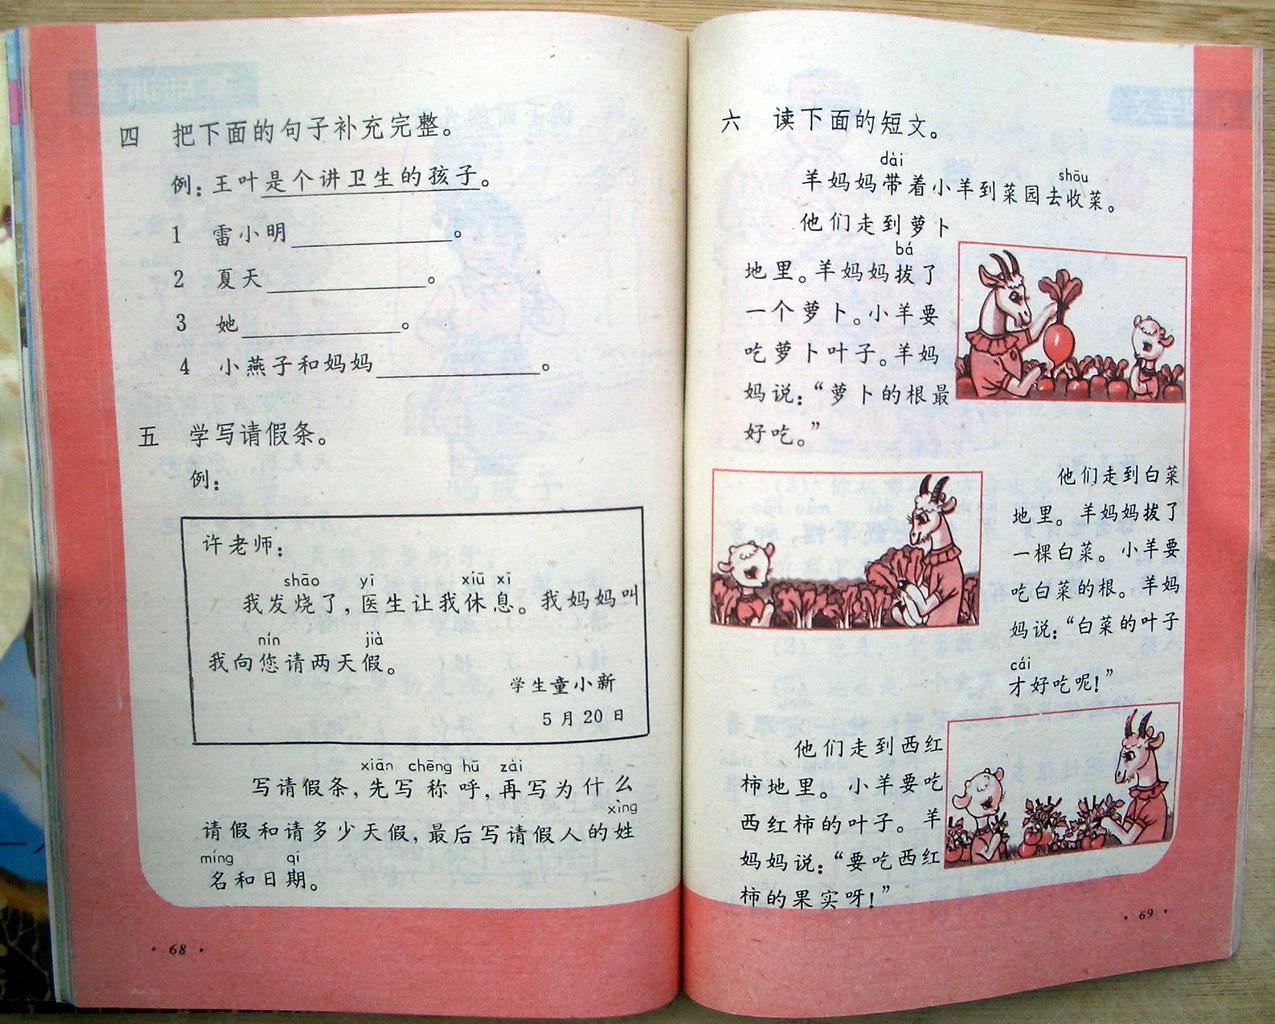 四 把下面的句子补充完整。
例：王叶是个讲卫生的孩子。
1 雷小明＿＿＿＿＿＿。
2 夏天＿＿＿＿＿＿。
3 她＿＿＿＿＿＿。
4 小燕子和妈妈＿＿＿＿＿＿。
五 学写请假条。
例：
许老师：
shāo yī xiū xī
我发烧了，医生让我休息。我妈妈叫
nín jià
我向您请两天假。
学生童小新
5月20日
xiān chēng hū zài
写请假条，先写称呼，再写为什么
xìng
请假和请多少天假，最后写请假人的姓
míng qī
名和日期。
·68·
六 读下面的短文。
dài shōu
羊妈妈带着小羊到菜园去收菜。
他们走到萝卜
bá
地里。羊妈妈拔了
一个萝卜。小羊要
吃萝卜叶子。羊妈
妈说：“萝卜的根最
好吃。”
他们走到白菜
地里。羊妈妈拔了
一棵白菜。小羊要
吃白菜的根。羊妈
妈说：“白菜的叶子
cái
才好吃呢！”
他们走到西红
柿地里。小羊要吃
西红柿的叶子。羊
妈妈说：“要吃西红
柿的果实呀！”
·69·